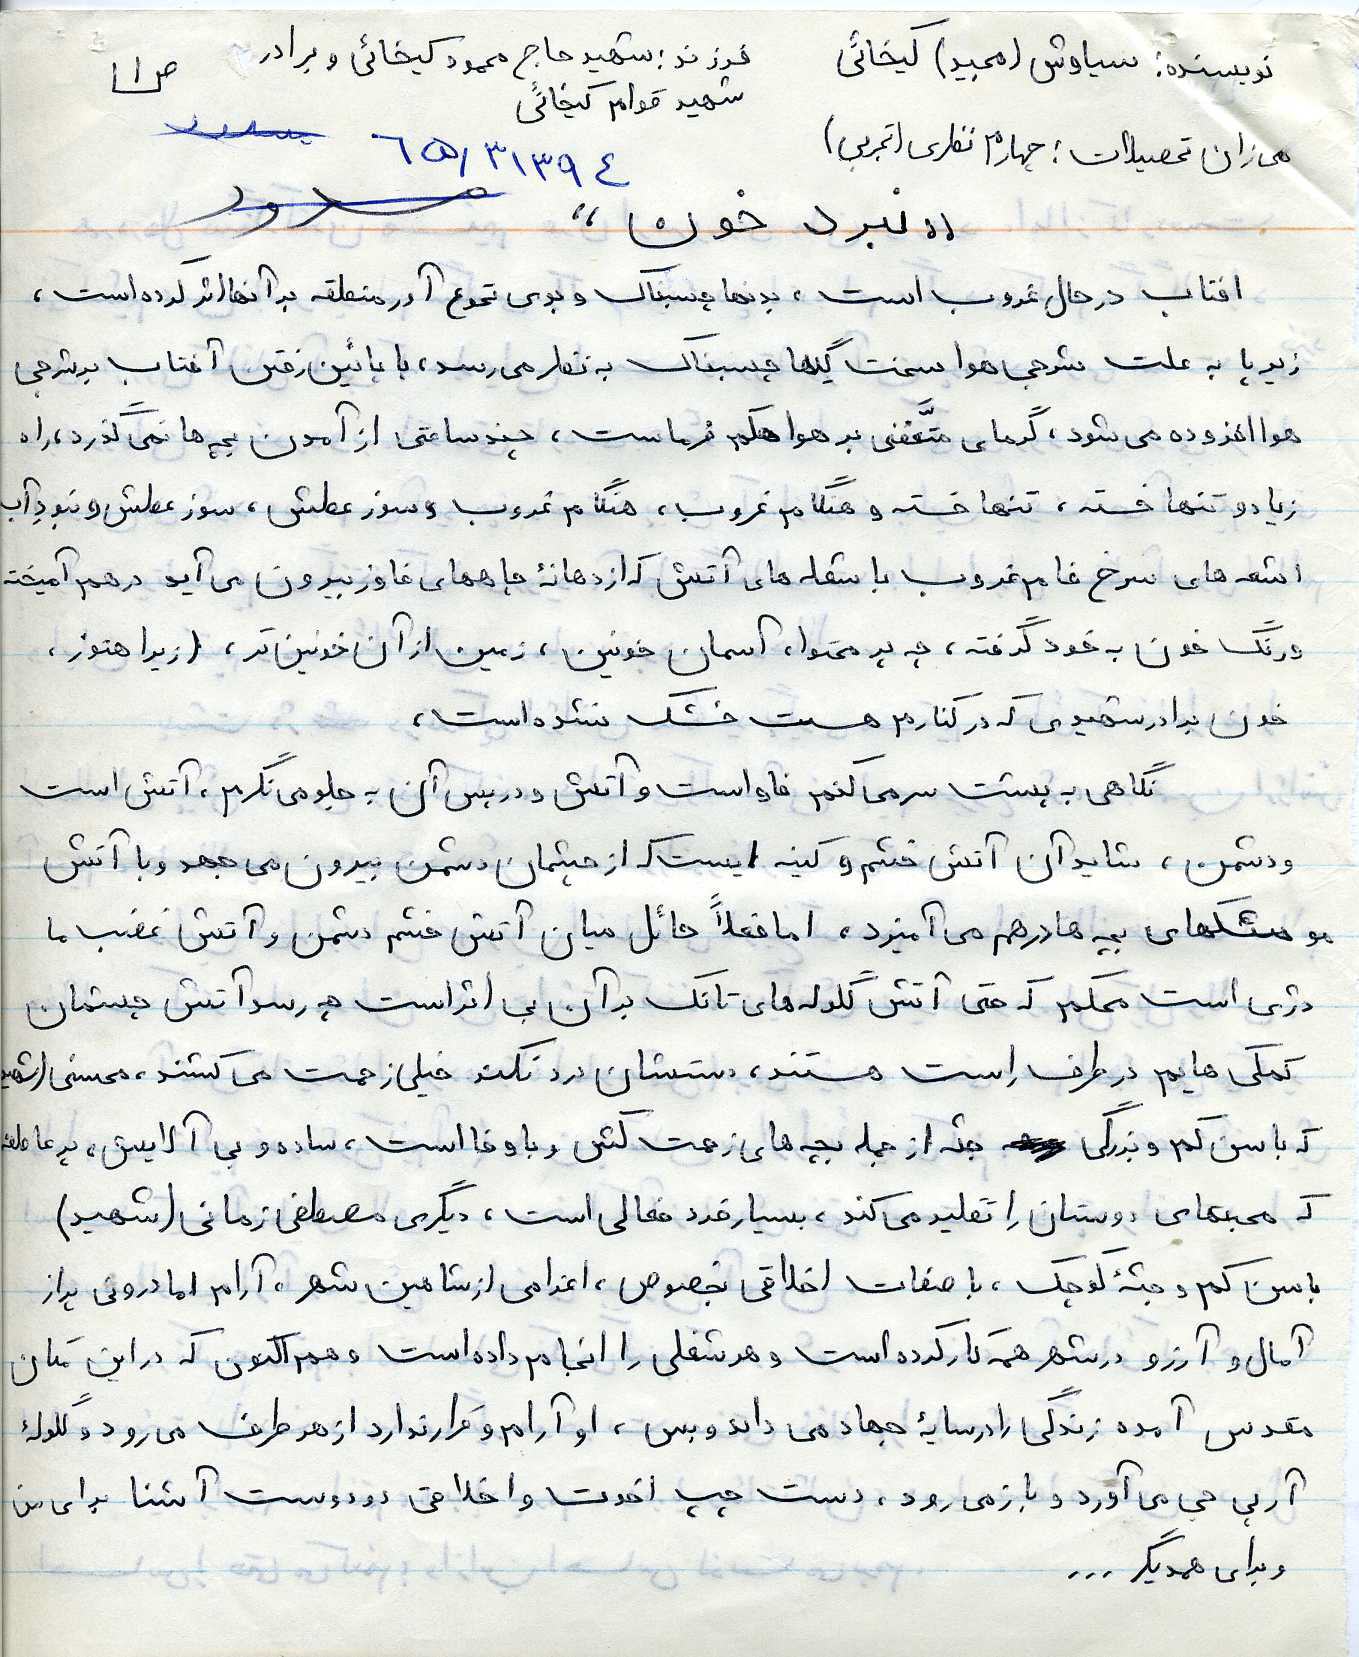 نویسنده: سیاوش (مجید) کیخائی
فرزند: شهید حاج محمود کیخائی و برادر
شهید قوام کیخائی
ص ۱۱
میزان تحصیلات: چهارم نظری (تجربی)
۶۵/۳۱۳۹۴
«نبرد خون»
افتاب در حال غروب است، بدنها چسبناک و بوی تهوع آور منطقه بر آنها اثر کرده است،
زیر پا به علت شرجی هوا سخت گیلها چسبناک به نظر می رسد، با پائین رفتن آفتاب بر شرجی
هوا افزوده می شود، گرمای متعفنی بر هوا حکم فرماست، چند ساعتی از آمدن بچه ها نمی گذرد، راه
زیاد و تنها خسته، تنها خسته و هنگام غروب، هنگام غروب و سوز عطش، سوز عطش و نبود آب
اشعه های سرخ فام غروب با شعله های آتش که از دهانهٔ چاههای فاو بیرون می آید در هم آمیخته
و رنگ خون به خود گرفته، چه پر محتوا، آسمان خونین، زمین از آن خونین تر، (زیرا هنوز،
خون برادر شهیدی که در کنارم هست خشک نشده است،
نگاهی به پشت سر می کنم فاو است و آتش و در پس آن به جلو می نگرم، آتش است
و دشمن، شاید آن آتش خشم و کینه ایست که از چشمان دشمن بیرون می جهد و با آتش
موشکهای بچه ها در هم می آمیزد، اما فعلاً حائل میان آتش خشم دشمن و آتش غضب ما
دژی است محکم که حتی آتش گلوله های تانک بر آن بی اثر است چه رسد آتش چشمان
کمکی هایم در طرف راست هستند، دستشان درد نکند خیلی زحمت می کشند، محسنی (شهید
که با سن کم و بزرگی جثه از جمله بچه های زحمت کش و با وفا است، ساده و بی آلایش، پر عاطفه
که محبهای دوستان را تقلید می کند، بسیار فرد فعالی است، دیگری مصطفی زمانی (شهید)
با سن کم و جثهٔ کوچک، با صفات اخلاقی بخصوص، اعزامی از شاهین شهر، آرام اما درونی پر از
آمال و آرزو در شهر همه کار کرده است و هر شغلی را انجام داده است و هم اکنون که در این مکان
مقدس آمده زندگی را در سایهٔ جهاد می داند و بس، او آرام و قرار ندارد از هر طرف می رود و گلولهٔ
آرپی جی می آورد و باز می رود، دست چپ اخوت و اخلاقی دو دوست آشنا برای من
و برای همدیگر ...